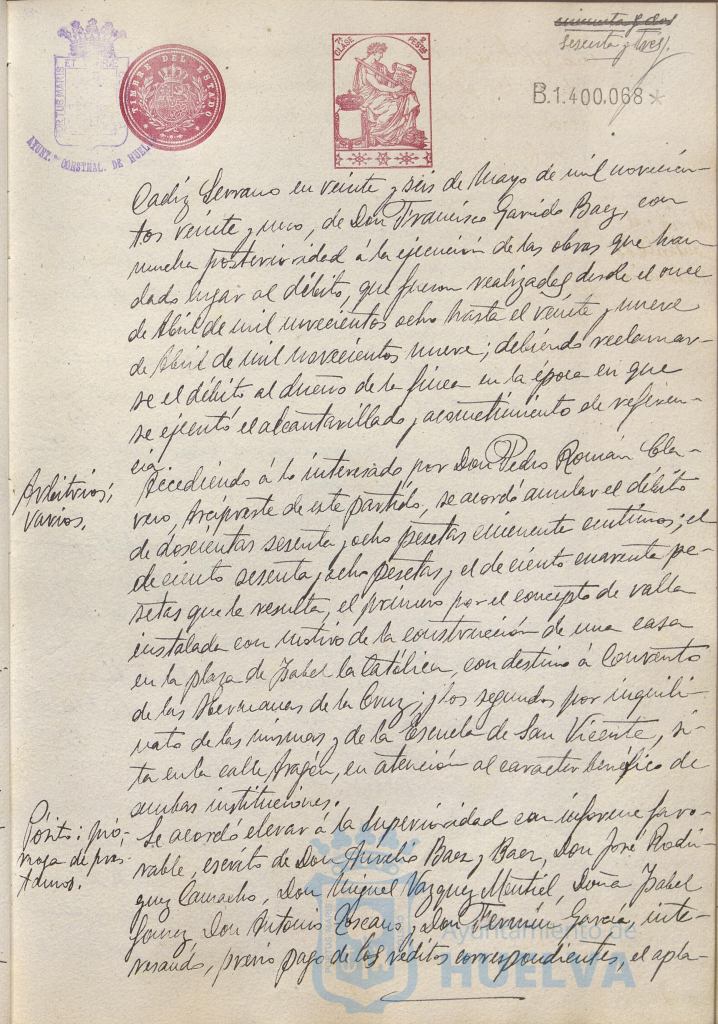 cincuenta y dos
sesenta y tres.
7ª CLASE 2 PESTAS
TIMBRE DEL ESTADO
PORTUS MARIS ET
AYUNT.º CONSTNAL. DE HUELVA
B.1.400.068*
Cadiz Serrano en veinte y seis de Mayo de mil novecien-
tos veinte y uno, de Don Francisco Garrido Baez, con
mucha posterioridad á la ejecución de las obras que han
dado lugar al débito, que fueron realizadas desde el once
de Abril de mil novecientos ocho hasta el veinte y nueve
de Abril de mil novecientos nueve; debiendo reclamar-
se el débito al dueño de la finca en la época en que
se ejecutó el alcantarillado y acometimiento de referen-
cia.
Arbitrios;
varios.
Accediendo á lo interesado por Don Pedro Román Cla-
vero, Arcipreste de este partido, se acordó anular el débito
de doscientas sesenta y ocho pesetas cincuenta centimos; el
de ciento sesenta y ocho pesetas y el de ciento cuarenta pe-
setas que le resulta, el primero por el concepto de valla
instalada con motivo de la construcción de una casa
en la plaza de Isabel la Católica, con destino á Convento
de las Hermanas de la Cruz; y los segundos por inquili-
nato de las mismas y de la Escuela de San Vicente, si-
ta en la calle Aragón, en atención al caracter benéfico de
ambas instituciones.
Pósito: pró-
rroga de prés-
tamos.
Se acordó elevar á la Superioridad con informe favo-
rable, escrito de Don Aurelio Baez y Baez, Don José Rodri-
guez Camacho, Don Miguel Vazquez Montiel, Doña Isabel
Gomez, Don Antonio Toscano y Don Fermín García, inte-
resando, previo pago de los réditos correspondientes, el apla-
Ayuntamiento de
HUELVA